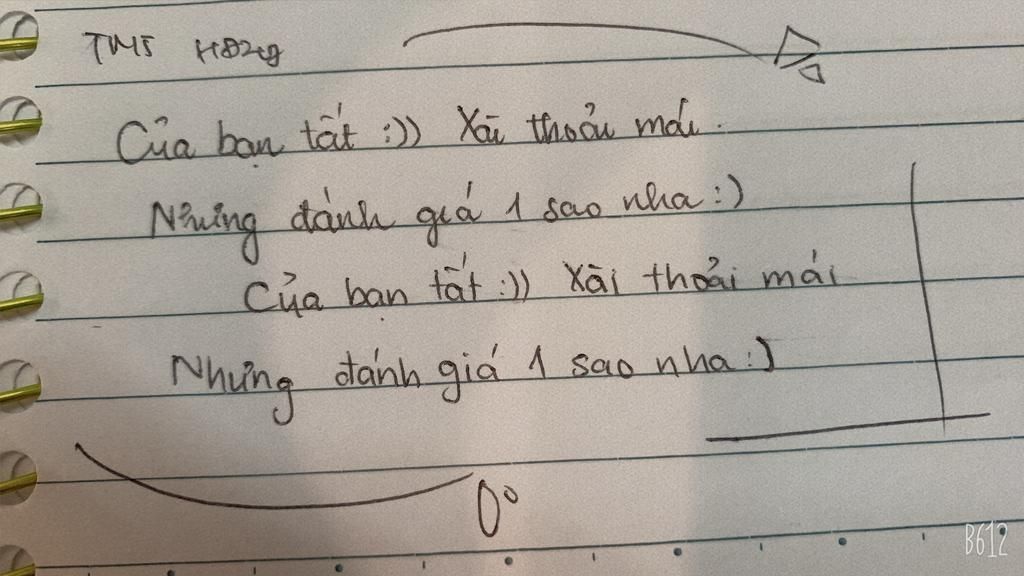 TMS H82g
Của bạn tất :)) Xài thoải mái.
Nhưng đánh giá 1 sao nha :)
Của bạn tất :)) Xài thoải mái
Nhưng đánh giá 1 sao nha :)
0°
B612